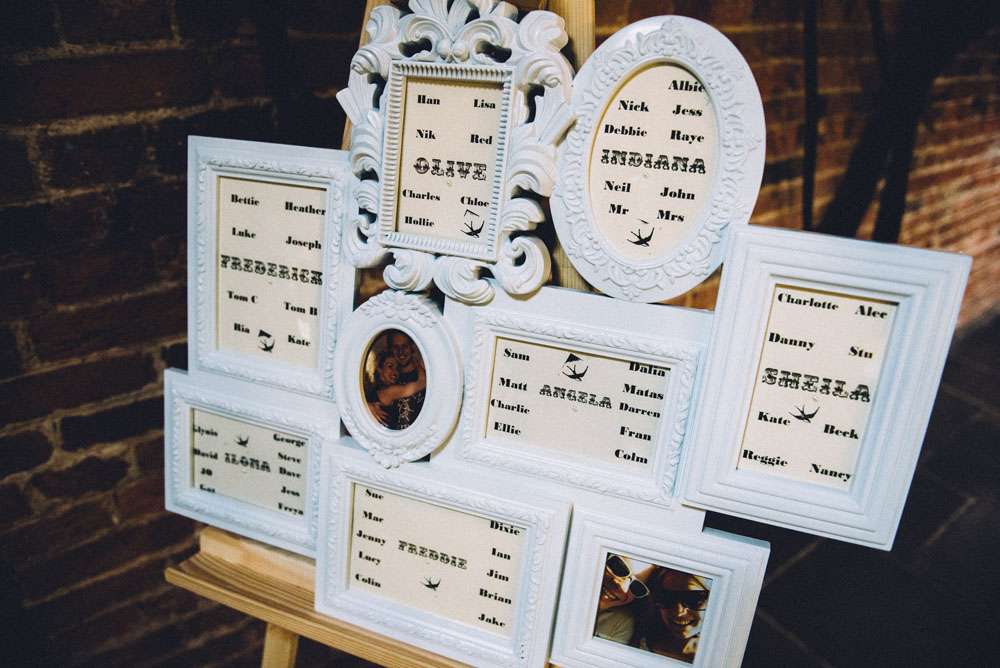 Han Lisa
Nik Red
OLIVE
Charles Chloe
Hollie
Albie
Nick Jess
Debbie Raye
INDIANA
Neil John
Mr Mrs
Bettie Heather
Luke Joseph
FREDERICK
Tom C Tom B
Ria Kate
Sam Dalia
Matt Matas
ANGELA
Charlie Darren
Ellie Fran
Colm
Charlotte Alec
Danny Stu
SHEILA
Kate Beck
Reggie Nancy
Glynis George
David Steve
ILONA
JO Dave
Jess
Freya
Sue
Mae Dixie
Jenny Ian
FREDDIE
Lucy Jim
Colin Brian
Jake